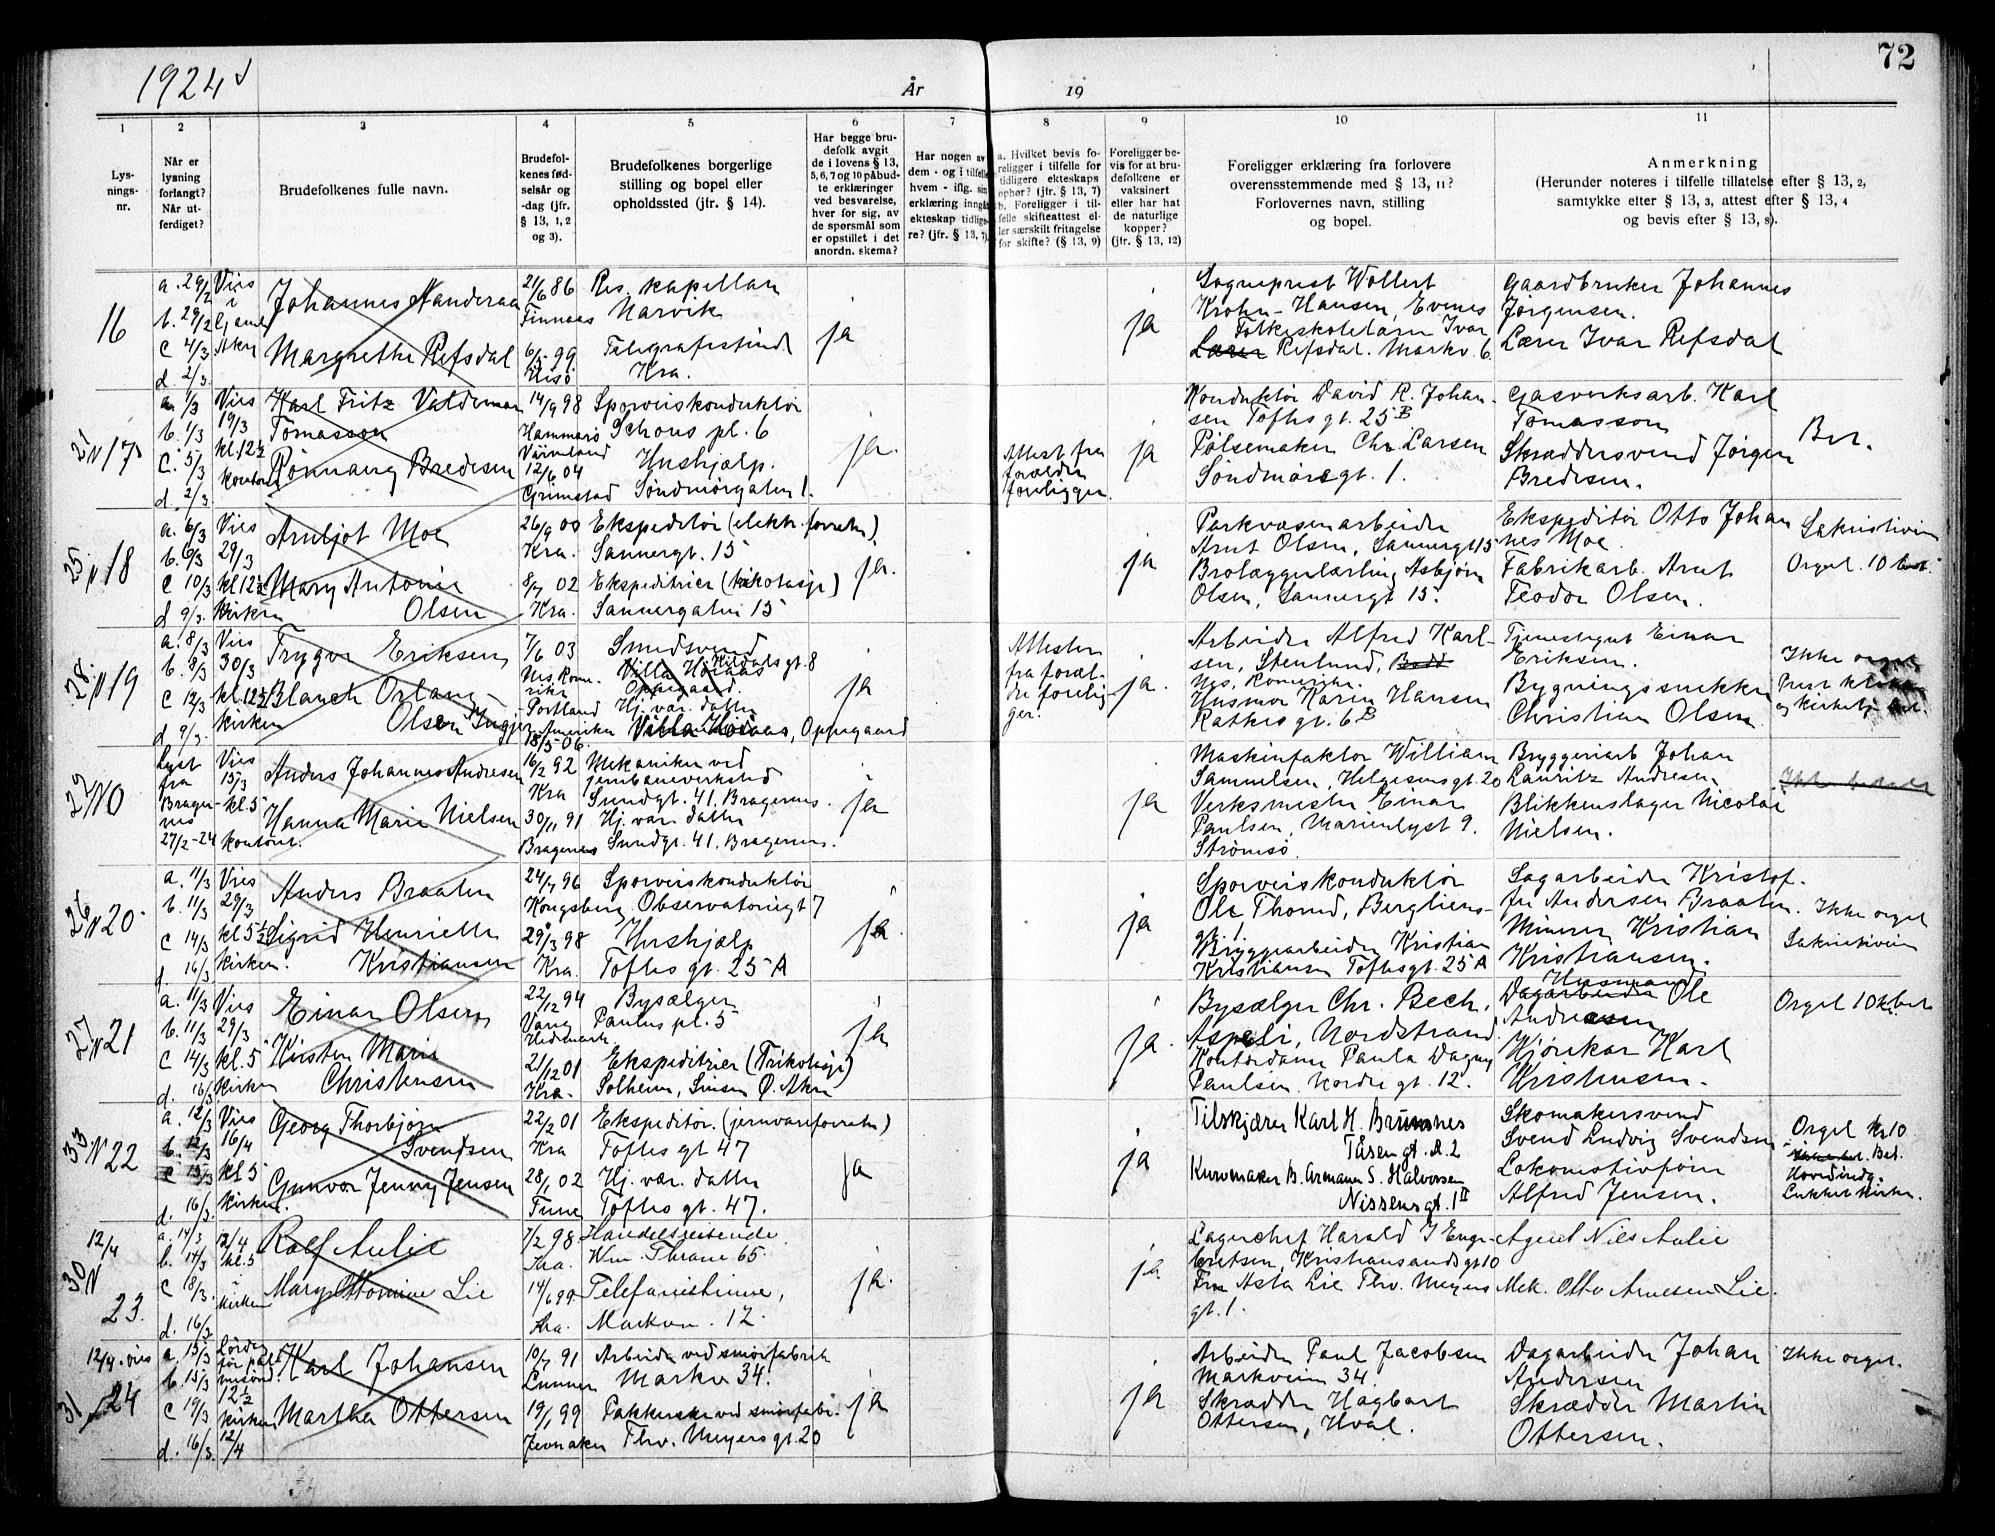 72
1924
År
19
1
2
3
4
5
6
7
8
9
10
11
Lys-
nings-
nr.
Når er
lysning
forlangt?
Når ut-
ferdiget?
Brudefolkenes fulle navn.
Brudefol-
kenes fød-
selsår og
-dag (jfr.
§ 13, 1, 2
og 3).
Brudefolkenes borgerlige
stilling og bopel eller
opholdssted (jfr. § 14).
Har begge bru-
defolk avgit
de i lovens § 13,
5, 6, 7 og 10 påbud-
te erklæringer
ved besvarelse,
hver for sig, av
de spørsmål som
er opstillet i det
anordn. skema?
Har nogen av
dem - og i tilfelle
hvem - iflg. sin
erklæring inngåt
ekteskap tidlige-
re? (jfr. § 13, 7).
a. Hvilket bevis fo-
religger i tilfelle for
tidligere ekteskaps
ophør? (jfr. § 13, 7)
b. Foreligger i til-
felle skifteattest el-
ler særskilt fritagelse
for skifte? (§ 13, 9)
Foreligger be-
vis for at bru-
defolkene er
vaksinert
eller har hat
de naturlige
kopper?
(jfr. § 13, 12)
Foreligger erklæring fra forlovere
overensstemmende med § 13, 11?
Forlovernes navn, stilling
og bopel.
Anmerkning
(Herunder noteres i tilfelle tillatelse efter § 13, 2,
samtykke efter § 13, 3, attest efter § 13, 4
og bevis efter § 13, 8).
16
a. 29/2
b. 29/2
c 4/3
d. 2/3.
Vies
i
Gamle
Aker
Johannes Nanderaa
Margrethe Refsdal
21/6 86
Finnaas
99
Res. kapellan
Narvik
Telegrafistinde
Kra.
ja
ja
Sogneprest Wollert
Krohn-Hansen, Evenes
Folkeskolelærer Ivar
Lærer Refsdal. Markv. 6
Gaardbruker Johannes
Jørgensen.
Lærer Ivar Refsdal
21
N 17
a. 1/3
b. 1/3
c. 5/3
d. 2/3
Vies
19/3
kl 12½
kontoret
Karl Fritz Valdemar
Tomasson
Rønnaug Bredesen
14/9 98
Hammarö
Värmland
12/6 04
Grimstad
Sporveiskonduktør
Schous pl. 6
Hushjælp.
Søndmørgaten 1.
ja.
Attest fra
forældre
foreligger.
ja
Konduktør David R. Johan-
sen Toftes gt. 25 B
Pølsemaker Chr. Larsen
Søndmørsgt. 1.
Gasverksarb. Karl
Tomasson
Skræddersvend Jørgen
Bredesen.
Bet.
25
N 18
a. 6/3
b. 6/3
c 10/3
d 9/3.
Vies
29/3
kl 12½
kirken
Arnljot Moe
Mary Antonie
Olsen
26/9 00
Kra.
8/7 02
Kra.
Ekspeditør (elektr. forretn.)
Sannergt. 15
Ekspeditrice (trikotasje)
Sannergaten 15
ja.
ja
Parkvæsenarbeider
Arnt Olsen, Sannergt 15
Brolæggerlærling Asbjørn
Olsen, Sannergt 15.
Ekspeditør Otto Johan
nes Moe
Fabrikarb. Arnt
Teodor Olsen.
Sakristiveien
Orgel. 10 bet.
28
N 19
a. 8/3
b. 8/3
c 12/3
d 9/3.
Vies
30/3
kl. 12½
kirken
Trygve Eriksen
Blanch Orlaug
Olsen
7/6 03
Nes. Rome-
rike
Portland
Amerika
18/5-06.
Smedsvend
Villa Høiaas
Kildals gt. 8
Oppegaard.
Hj. vær. datter
Villa Høiaas, Oppegaard
ja
Attester
fra foræl-
dre forelig
ger.
ja.
Arbeider Alfred Karl-
sen, Stenlund,
Nes, Romerike.
Husmor Karen Hansen
Rathkes gt. 6 B
Tjenestegut Einar
Eriksen.
Bygningssnekker
Christian Olsen
Ikke orgel
29
N 0
Lyst
fra
Brager-
nes
27/2-24
Vies
15/3
kl. 5
kontoret.
Anders Johannes Andresen
Hanna Marie Nielsen
16/2 92
Kra
30/1 91
Bragernes
Mekaniker ved
jernbaneverksted
Sundgt. 41, Bragernes.
Hj. vær. datter
Sundgt. 41. Bragernes.
ja
ja
Maskinfaktor William
Samuelsen, Helgesensgt. 20
Verksmester Einar
Paulsen, Marienlyst 9.
Strømsø.
Bryggeriarb Johan
Lauritz Andresen
Blikkenslager Nicolai
Nielsen.
26
N 20
a. 11/3
b. 11/3
c 14/3
d. 16/3
Vies
29/3
kl 5½
kirken.
Anders Braaten
Sigrid Henriette
Kristiansen
24/7 96
Kongsberg
29/3 98
Kra.
Sporveiskonduktør
Observatoriegt 7
Hushjælp
Toftes gt. 25 A
ja.
ja
Sporveiskonduktør
Ole Thorud, Bergliens-
gt. 1
Bryggearbeider Kristian
Kristiansen Toftesgt. 25 A
Sagarbeider Kristof-
fer Andersen Braaten.
Minerer Kristian
Kristiansen.
Ikke orgel
Sakristiveien
27
N 21
a. 11/3
b. 11/3
c 14/3
d. 16/3
Vies
29/3
kl. 5
kirken
Einar Olsen
Kirsten Marie
Christensen
22/12 94
Vang
Hedmark.
21/12 01
Kra.
Bysælger
Paulus pl. 5
Ekspeditrice (Trikotasje)
Solheim, Sinsen Ø. Aker
ja
ja.
Bysælger Chr. Bech,
Aspeli, Nordstrand.
Kontordame Paula Dagny
Paulsen. Nordre gt. 12.
Husmand
Dagarbeider Ole
Andresen
Kjørekar Karl
Kristensen.
Orgel 10 kr bet
33
N 22
a. 12/3
b. 12/3
c 15/3
d. 16/3.
Vies
16/4
kl 5
kirken.
Georg Thorbjørn
Svendsen
Gunvor Jenny Jensen
22/2 01
Kra
28/1 02
Ekspeditør. (jernvareforretn)
Toftes gt 47
Hj. vær. datter
Toftes gt. 47.
ja
ja
Tilskjærer Karl H. Brumnes
Tåsen gt. A. 2
Kurvmaker B. Armann S. Halvorsen
Nissensgt. 1 II
Skomakersvend
Svend Ludvig Svendsen
Lokomotivfører
Alfred Jensen.
Orgel kr 10
Bet.
Hovedindg.
Lukket kirke.
12/4
30
N
23.
a. 14/3
b. 14/3
c 18/3.
d. 16/3
12/4
kl. 5
i
kirken
Rolf Aulie
Mary Ottomine Lie
7/2 98
Kra.
14/6 99
Kra.
Handelsreisende.
Wm. Thrane 65.
Telefonistinne,
Markvn. 12.
ja.
ja
Lagerchef Harald J Enge-
bretsen, Kristiansandsgt 10
Fru Asta Lie Thv. Meyers
gt. 1.
Agent Nils Aulie
Mek. Otto Arnesen Lie.
12/4. vies
31
24
a. 15/3
b. 15/3
c 19/3
d. 16/3.
Lørdag
før palme
søndag
12½
kirken
12/4
Karl Johansen
Martha Ottersen
10/7 91
Lunner
19/1 99
Jevnaker
Arbeider ved smørfabrik
Markv 34.
Pakkerske ved smørfabr.
Thv. Meyers gt. 20
ja
ja
Arbeider Paul Jacobsen
Markveien 34.
Skrædder Hagbart
Ottersen, Hval.
Dagarbeider Johan
Andersen
Skrædder Martin
Ottersen.
Ikke orgel.